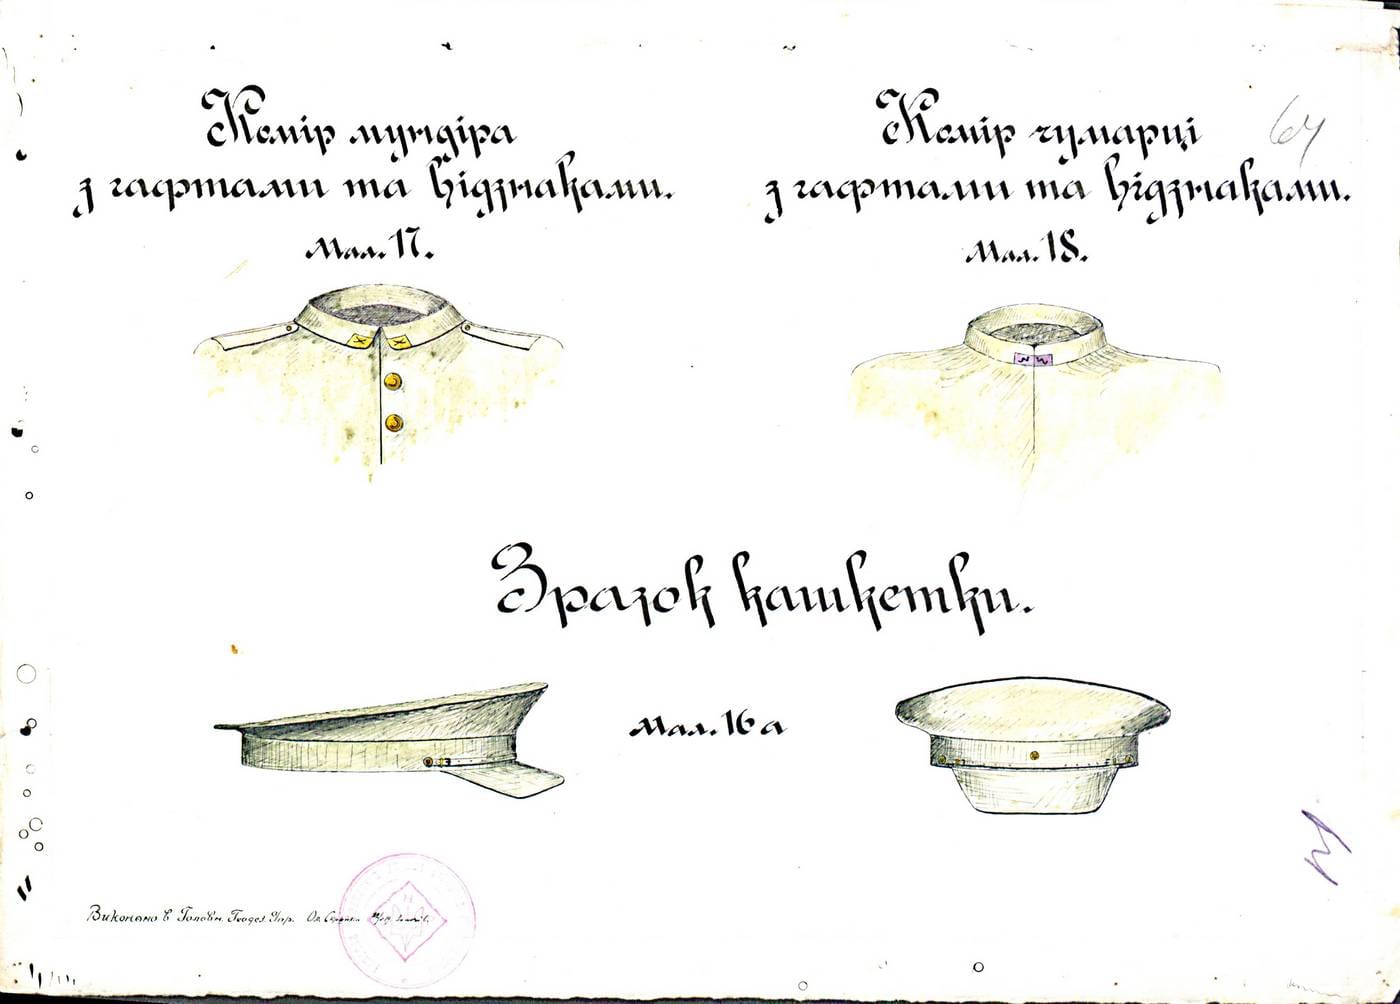 Комір мундіра
з гафтами та відзнаками.
Мал. 17.
Комір чумарці
з гафтами та відзнаками.
Мал. 18.
64
Зразок кашкетки.
Мал. 16 а
Виконано в Головн. Геодез. Упр.